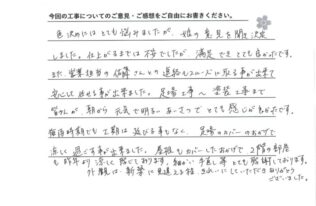 今回の工事についてのご意見・ご感想をご自由にお書きください。
色決めにはとても悩みましたが、娘の意見を聞き決定
しました。仕上がるまでは不安でしたが、満足できとても良かったです。
また営業担当の佐藤さんとの連絡もスムーズに取る事が出来て
安心して任せる事が出来ました。足場工事〜塗装工事まで
皆さんが朝から元気で明るいあいさつでとても感じが良かったです。
梅雨時期でも工期は延びる事もなく、足場のカバーのおかげで
涼しく過ごす事が出来ました。屋根もカバーしたおかげで2階の部屋
も昨年より涼しく感じております。細かい手直し等とても感謝しております。
外観は、新築に見違える程、きれいにしていただきありがとう
ございました。